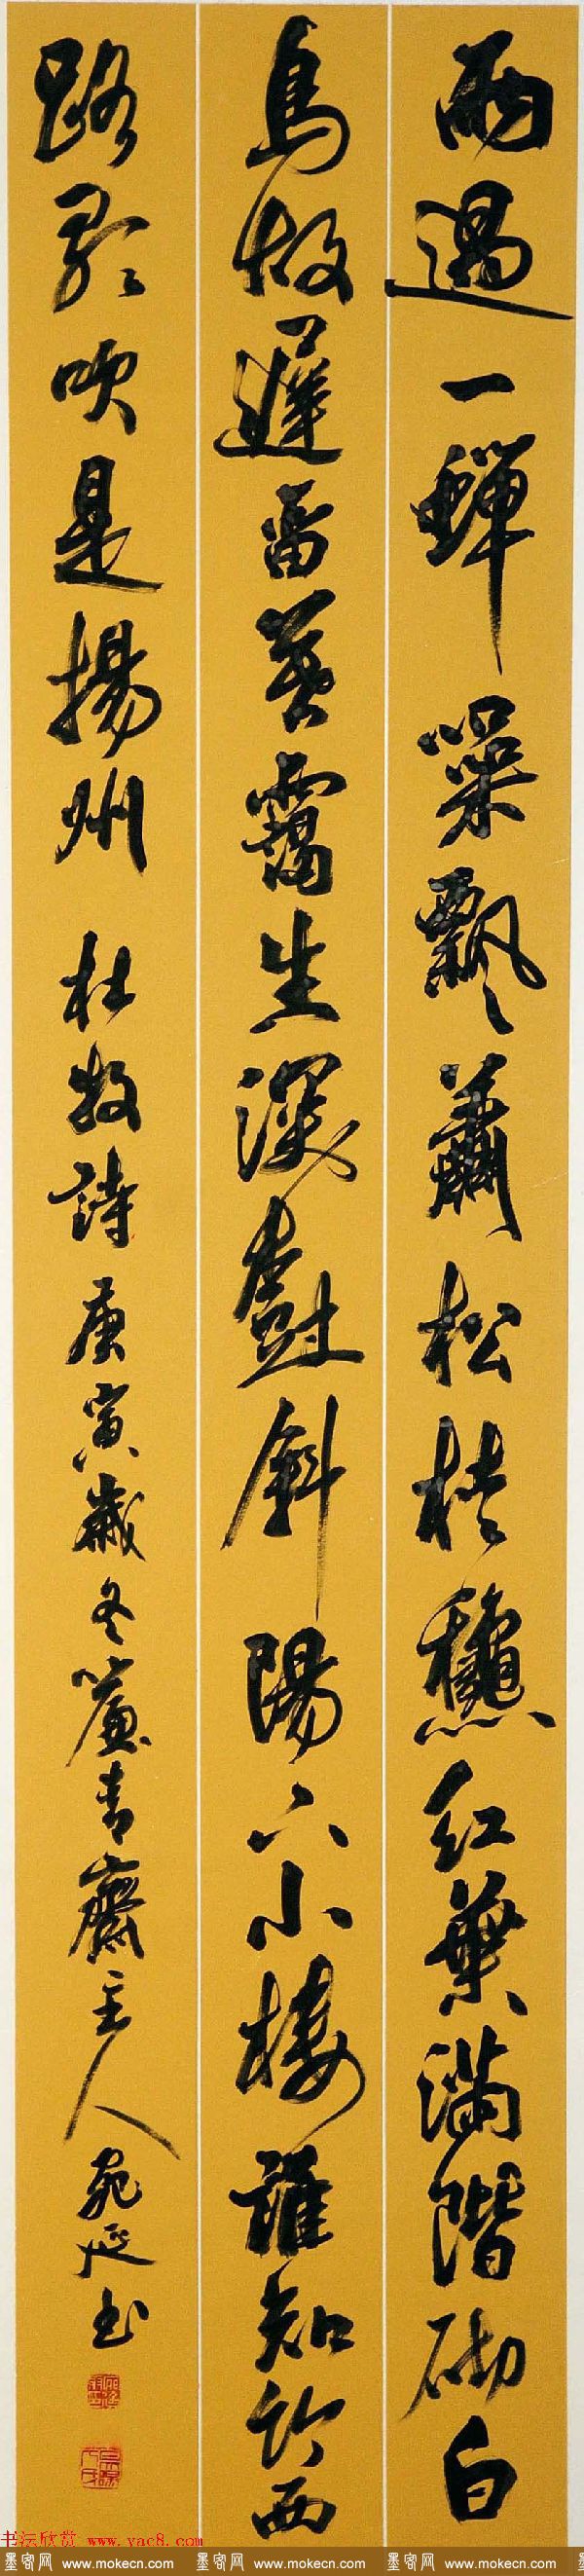 雨過一蟬噪飄蕭松桂龝紅葉滿階砌白
鳥故遲留暮靄生深樹斜陽下小樓誰知竹西
路歌吹是揚州 杜牧詩 庚寅歲冬簾青齋主人延書
书法欣赏 www.yac8.com
墨客网 www.mokecn.com 墨客网 www.mokecn.com 墨客网 www.mokecn.com